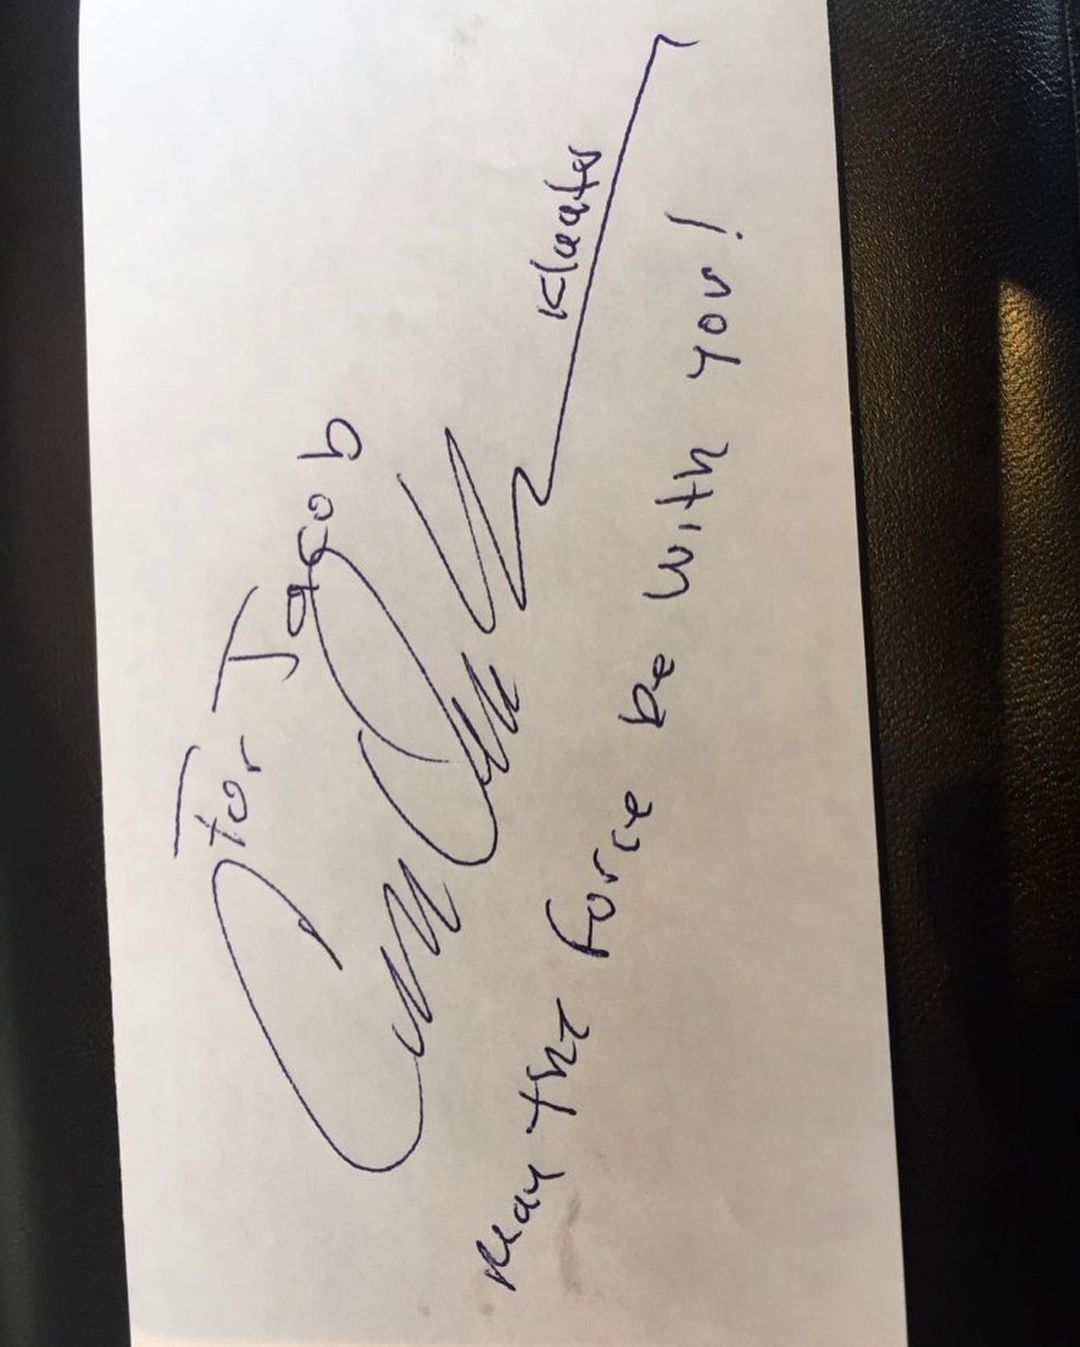 For Jacob
Klaatu
May the Force be with you!